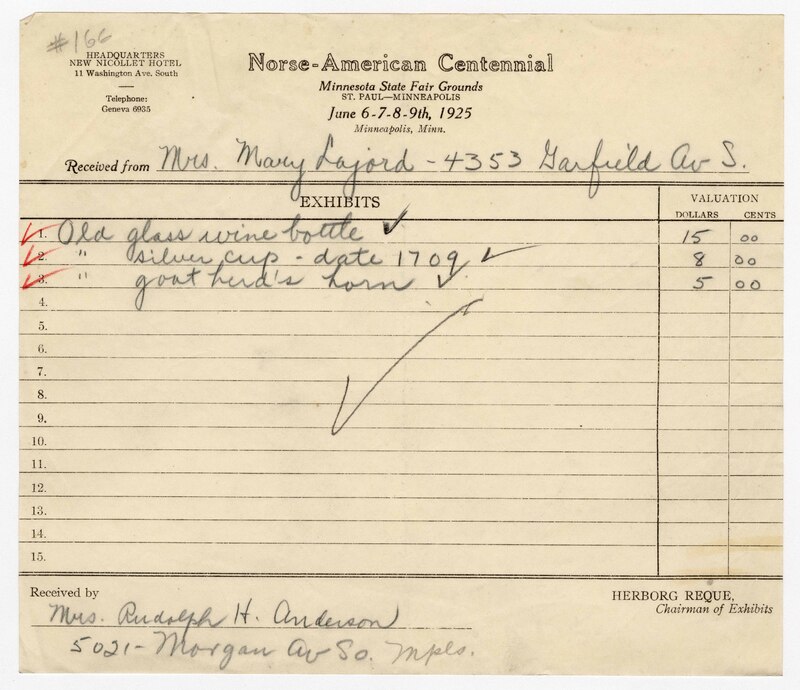 #166
HEADQUARTERS
NEW NICOLLET HOTEL
11 Washington Ave. South
Telephone:
Geneva 6935
Norse-American Centennial
Minnesota State Fair Grounds
ST. PAUL—MINNEAPOLIS
June 6-7-8-9th, 1925
Minneapolis, Minn.
Received from Mrs. Mary Lajord - 4353 Garfield Av S.
EXHIBITS VALUATION
DOLLARS CENTS
1. Old glass wine bottle ✓ 15 00
2. " silver cup - date 1709 ✓ 8 00
3. " goat herd's horn ✓ 5 00
4.
5.
6.
7.
8.
9.
10.
11.
12.
13.
14.
15.
Received by
Mrs. Rudolph H. Anderson
5021- Morgan Av So. Mpls.
HERBORG REQUE,
Chairman of Exhibits